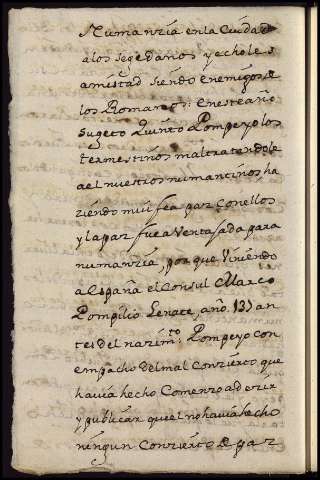 Numanzia en la Ciudad
a los segedanos y echoles
amistad siendo enemigos de
los Romanos: en este año
sugeto Quinto Pompeyo los
termestinos maltratendole
a el nuestros numantinos ha
ziendo mui fea paz Con ellos
y la paz fue a Ventajada para
numanzia, por que Viniendo
a España el Consul Marco
Pompilio Lenate, año 137 an
tes del nazim.to Pompeyo con
empacho del mal Conzierto que
havia hecho Comenzo a dezir
y publicar que el no havia hecho
ningun Conzierto de paz